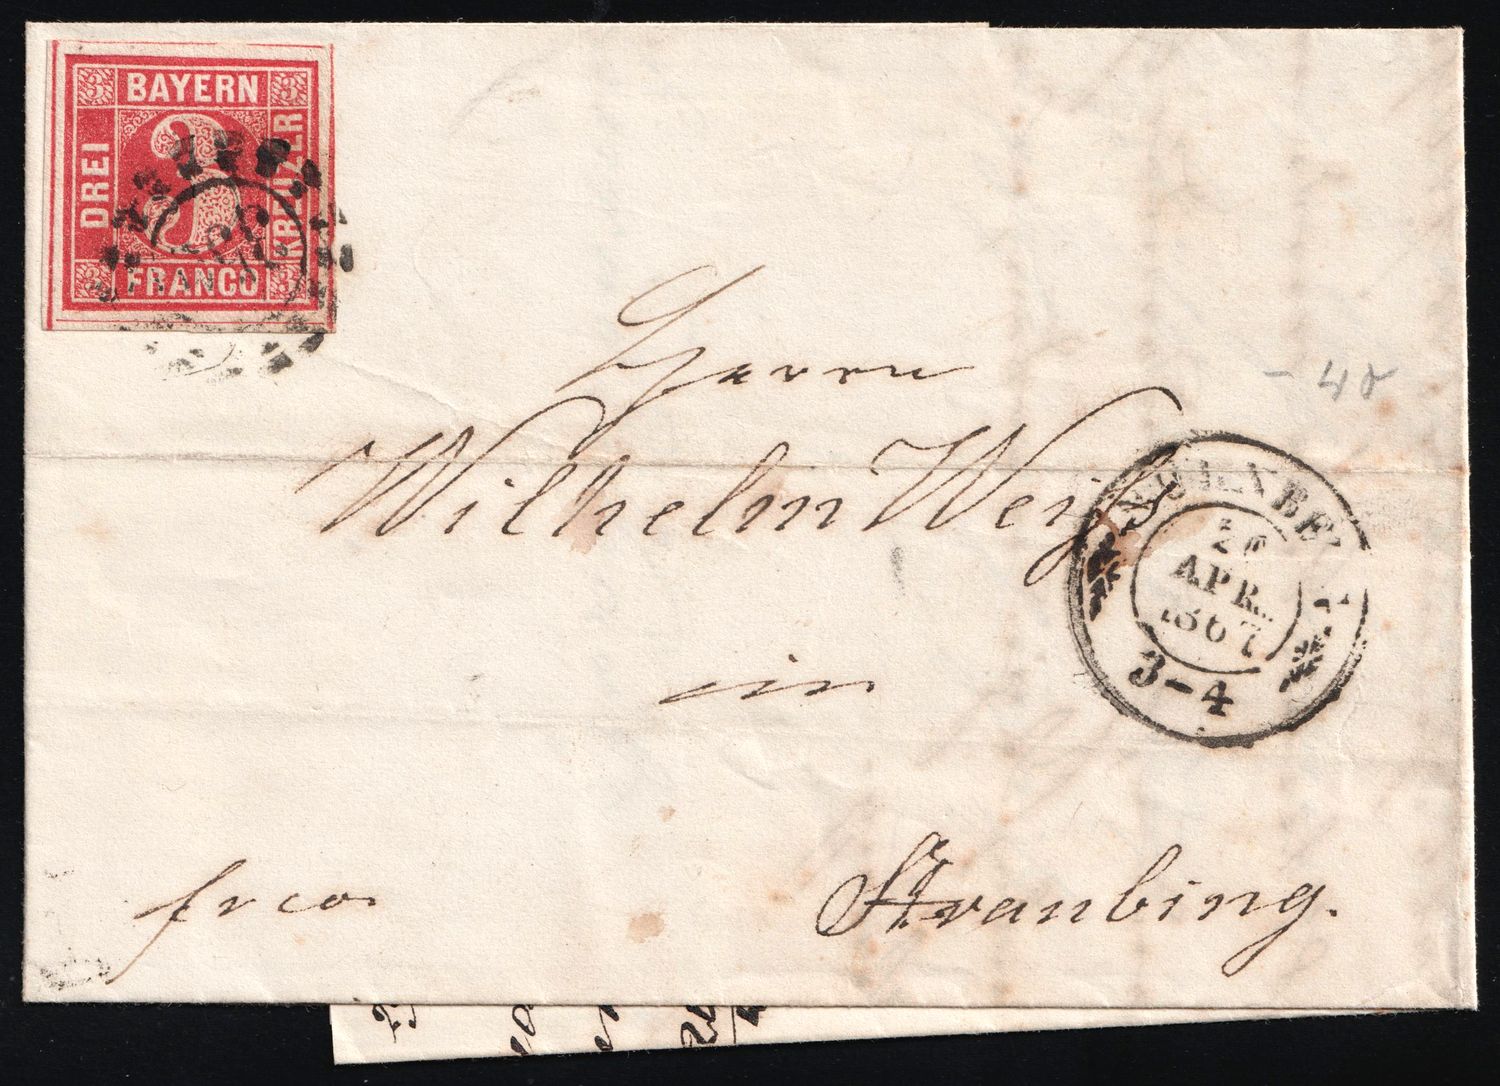 3 BAYERN 3
DREI
3
KREUZER
3 FRANCO 3
Herrn
- 40
Wilhelm Weiß
APR.
1867
3-4
in
frco
Straubing.